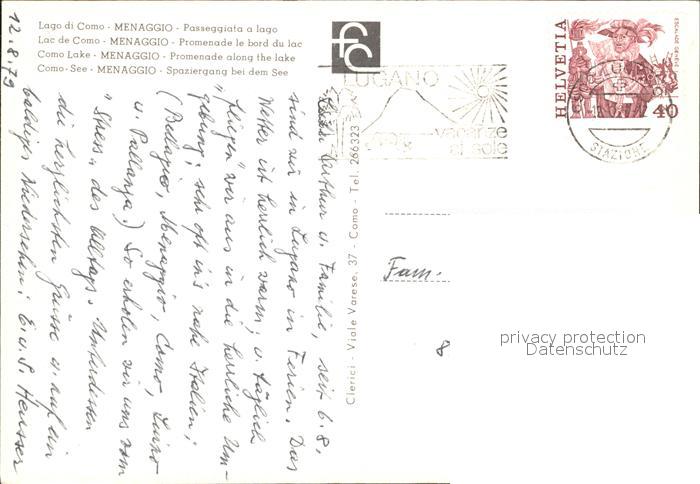 Lago di Como - MENAGGIO - Passeggiata a lago
Lac de Como - MENAGGIO - Promenade le bord du lac
Como Lake - MENAGGIO - Promenade along the lake
Como-See - MENAGGIO - Spaziergang bei dem See
fc
12.8.79
Familie, seit 6.8.
sind wir in Lugano in Ferien. Das
Wetter ist herrlich warm, u. täglich
"fliegen" wir aus in die herrliche Um-
gebung, sehr oft in's nahe Italien;
(Bellagio, Menaggio, Como, Luino
u. Pallanza.) So erholen wir uns vom
"Stress" des Alltags. Unterdessen
die herzlichsten Grüsse u. auf ein
baldiges Wiedersehen; E. u. S. Heusser
Clerici - Viale Varese, 37 - Como - Tel. 266323
LUGANO
vacanze
al sole
LUGANO
STAZIONE
HELVETIA
ESCALADE GENÈVE
40
Fam.
8
privacy protection
Datenschutz